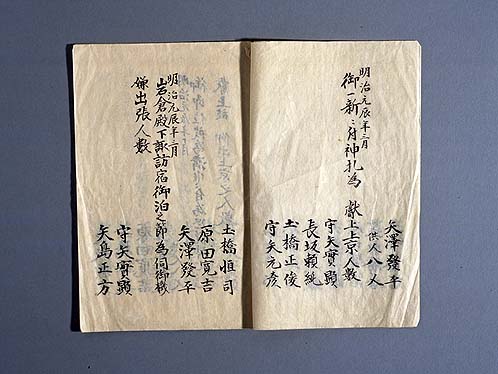 矢澤發平
供八人
明治元辰年二月
御一新ニ付神札為 献上上京人数
守矢實顕
長坂頼純
土橋正俊
守矢元彦
土橋恒司
原田寛吉
矢澤發平
明治元辰年二月
岩倉殿下諏訪宿御泊之節為伺御機
嫌出張人数
守矢實顕
矢島正方